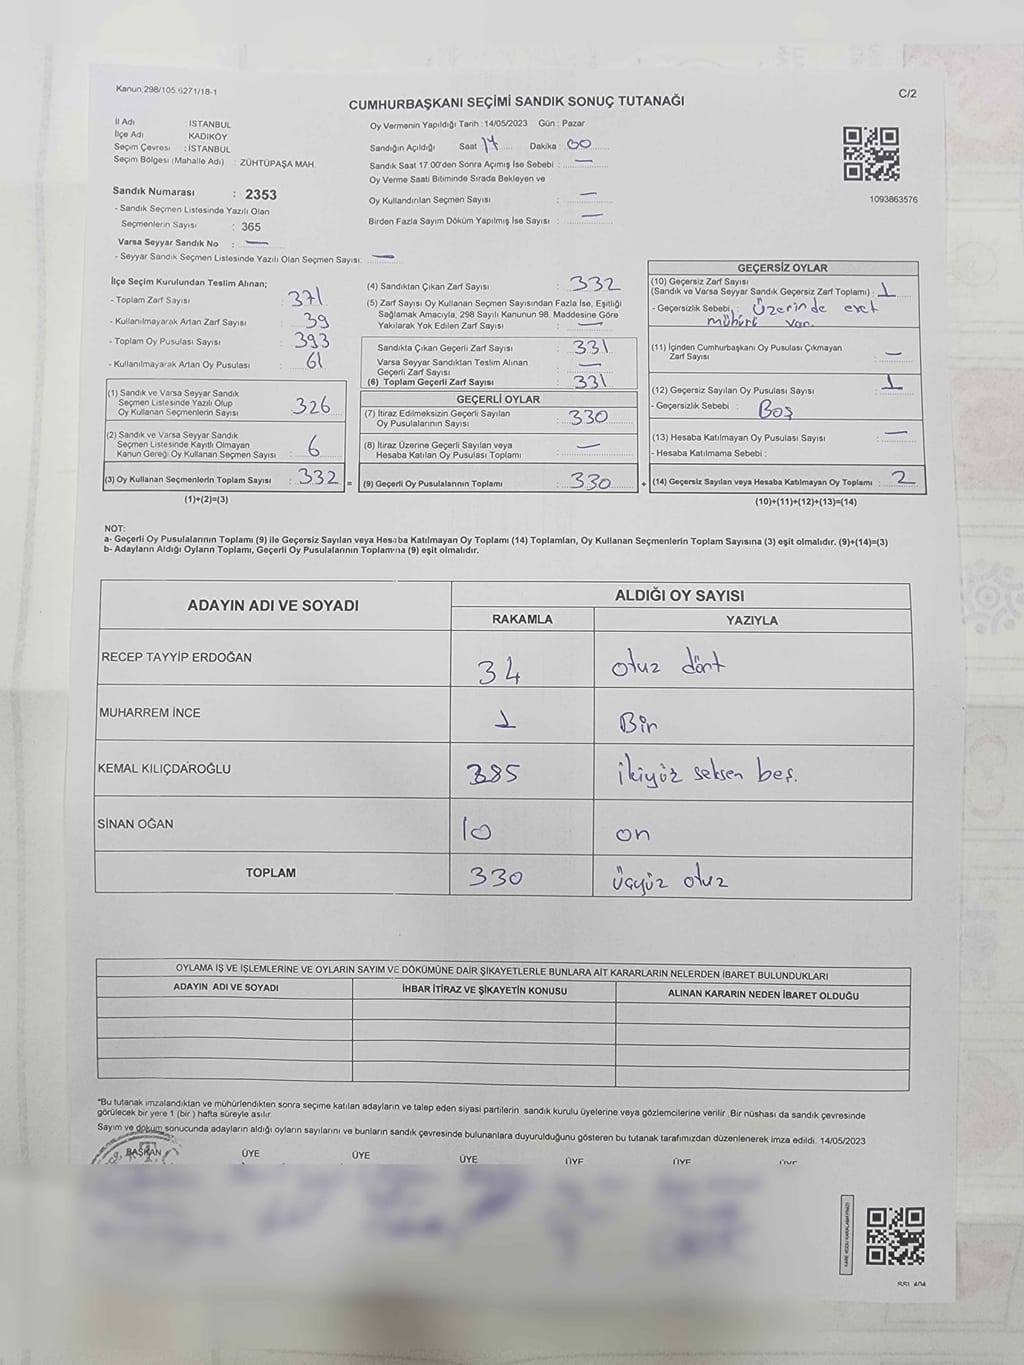 Kanun 298/105 6271/18-1
CUMHURBAŞKANI SEÇİMİ SANDIK SONUÇ TUTANAĞI
C/2
İl Adı İSTANBUL
İlçe Adı KADIKÖY
Seçim Çevresi : İSTANBUL
Seçim Bölgesi (Mahalle Adı) : ZÜHTÜPAŞA MAH.
Sandık Numarası : 2353
- Sandık Seçmen Listesinde Yazılı Olan
Seçmenlerin Sayısı : 365
Varsa Seyyar Sandık No : —
- Seyyar Sandık Seçmen Listesinde Yazılı Olan Seçmen Sayısı: —
Oy Vermenin Yapıldığı Tarih : 14/05/2023 Gün : Pazar
Sandığın Açıldığı Saat 17 Dakika : 00
Sandık Saat 17.00'den Sonra Açımış İse Sebebi : —
Oy Verme Saati Bitiminde Sırada Bekleyen ve
Oy Kullandırılan Seçmen Sayısı : —
Birden Fazla Sayım Döküm Yapılmış İse Sayısı : —
1093863576
İlçe Seçim Kurulundan Teslim Alınan;
- Toplam Zarf Sayısı : 371
- Kullanılmayarak Artan Zarf Sayısı : 39
- Toplam Oy Pusulası Sayısı : 393
- Kullanılmayarak Artan Oy Pusulası : 61
(1) Sandık ve Varsa Seyyar Sandık
Seçmen Listesinde Yazılı Olup
Oy Kullanan Seçmenlerin Sayısı : 326
(2) Sandık ve Varsa Seyyar Sandık
Seçmen Listesinde Kayıtlı Olmayan
Kanun Gereği Oy Kullanan Seçmen Sayısı : 6
(3) Oy Kullanan Seçmenlerin Toplam Sayısı : 332 =
(1)+(2)=(3)
(4) Sandıktan Çıkan Zarf Sayısı : 332
(5) Zarf Sayısı Oy Kullanan Seçmen Sayısından Fazla İse, Eşitliği
Sağlamak Amacıyla, 298 Sayılı Kanunun 98. Maddesine Göre
Yakılarak Yok Edilen Zarf Sayısı : —
Sandıkta Çıkan Geçerli Zarf Sayısı : 331
Varsa Seyyar Sandıktan Teslim Alınan
Geçerli Zarf Sayısı : —
(6) Toplam Geçerli Zarf Sayısı : 331
GEÇERLİ OYLAR
(7) İtiraz Edilmeksizin Geçerli Sayılan
Oy Pusulalarının Sayısı : 330
(8) İtiraz Üzerine Geçerli Sayılan veya
Hesaba Katılan Oy Pusulası Toplamı : —
(9) Geçerli Oy Pusulalarının Toplamı : 330 +
GEÇERSİZ OYLAR
(10) Geçersiz Zarf Sayısı
(Sandık ve Varsa Seyyar Sandık Geçersiz Zarf Toplamı) : 1
- Geçersizlik Sebebi : Üzerinde evet
mühürü var.
(11) İçinden Cumhurbaşkanı Oy Pusulası Çıkmayan
Zarf Sayısı : —
(12) Geçersiz Sayılan Oy Pusulası Sayısı : 1
- Geçersizlik Sebebi : Boş
(13) Hesaba Katılmayan Oy Pusulası Sayısı : —
- Hesaba Katılmama Sebebi :
(14) Geçersiz Sayılan veya Hesaba Katılmayan Oy Toplamı : 2
(10)+(11)+(12)+(13)=(14)
NOT:
a- Geçerli Oy Pusulalarının Toplamı (9) ile Geçersiz Sayılan veya Hesaba Katılmayan Oy Toplamı (14) Toplamları, Oy Kullanan Seçmenlerin Toplam Sayısına (3) eşit olmalıdır. (9)+(14)=(3)
b- Adayların Aldığı Oyların Toplamı, Geçerli Oy Pusulalarının Toplamına (9) eşit olmalıdır.
ADAYIN ADI VE SOYADI
ALDIĞI OY SAYISI
RAKAMLA YAZIYLA
RECEP TAYYİP ERDOĞAN 34 otuz dört
MUHARREM İNCE 1 Bir
KEMAL KILIÇDAROĞLU 285 ikiyüz seksen beş.
SİNAN OĞAN 10 on
TOPLAM 330 üçyüz otuz
OYLAMA İŞ VE İŞLEMLERİNE VE OYLARIN SAYIM VE DÖKÜMÜNE DAİR ŞİKAYETLERLE BUNLARA AİT KARARLARIN NELERDEN İBARET BULUNDUKLARI
ADAYIN ADI VE SOYADI İHBAR İTİRAZ VE ŞİKAYETİN KONUSU ALINAN KARARIN NEDEN İBARET OLDUĞU
*Bu tutanak imzalandıktan ve mühürlendikten sonra seçime katılan adayların ve talep eden siyasi partilerin sandık kurulu üyelerine veya gözlemcilerine verilir .Bir nüshası da sandık çevresinde
görülecek bir yere 1 (bir ) hafta süreyle asılır.
Sayım ve döküm sonucunda adayların aldığı oyların sayılarını ve bunların sandık çevresinde bulunanlara duyurulduğunu gösteren bu tutanak tarafımızdan düzenlenerek imza edildi. 14/05/2023
BAŞKAN ÜYE ÜYE ÜYE ÜYE ÜYE ÜYE